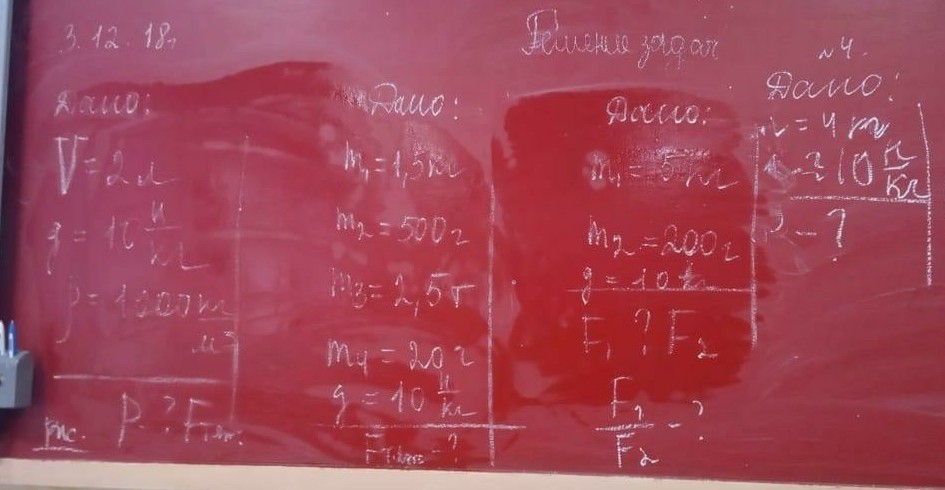 3.12.18г
Решение задач
Дано:
V=2л
g=10 н/кг
ρ=1000 кг/м³
P-? Fтяж.
рис.
Дано:
m₁=1,5кг
m₂=500г
m₃=2,5т
m₄=20г
g=10 н/кг
Fтяж-?
Дано:
m₁=5кг
m₂=200г
g=10
F₁ ? F₂
F₁/F₂ - ?
№4.
Дано:
=4
10 н/кг
-?